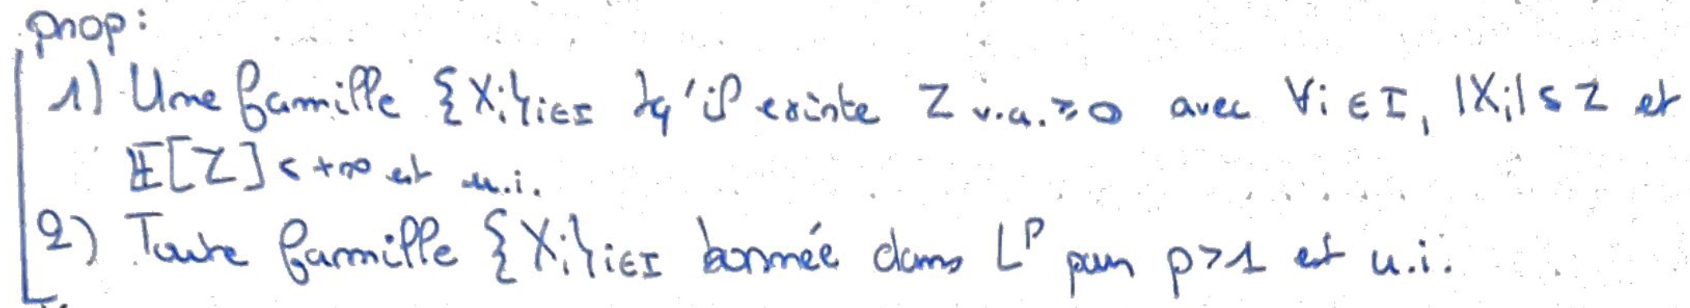 prop:
1) Une famille {Xi}i∈I tq'il existe Z v.a. ≥ 0 avec ∀i ∈ I, |Xi| ≤ Z et
𝔼[Z] < +∞ est u.i.
2) Toute famille {Xi}i∈I bornée dans L^p pour p>1 est u.i.